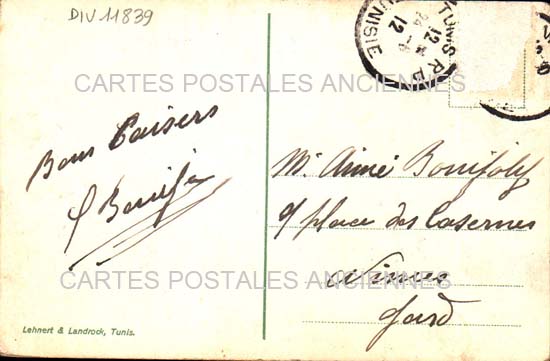 DIV 11839
TUNIS R.P.
12
24 -6
12
TUNISIE
CARTES POSTALES ANCIENNES
Bons Baisers
Mr Aimé Bonijoly
9 place des Casernes
Nimes
Gard
CARTES POSTALES ANCIENNES
Lehnert & Landrock, Tunis.